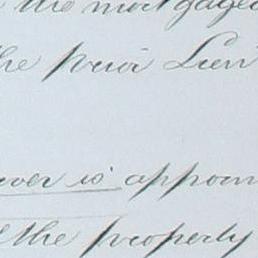 the mortgaged
the prior Lien
ver is appoin
the property